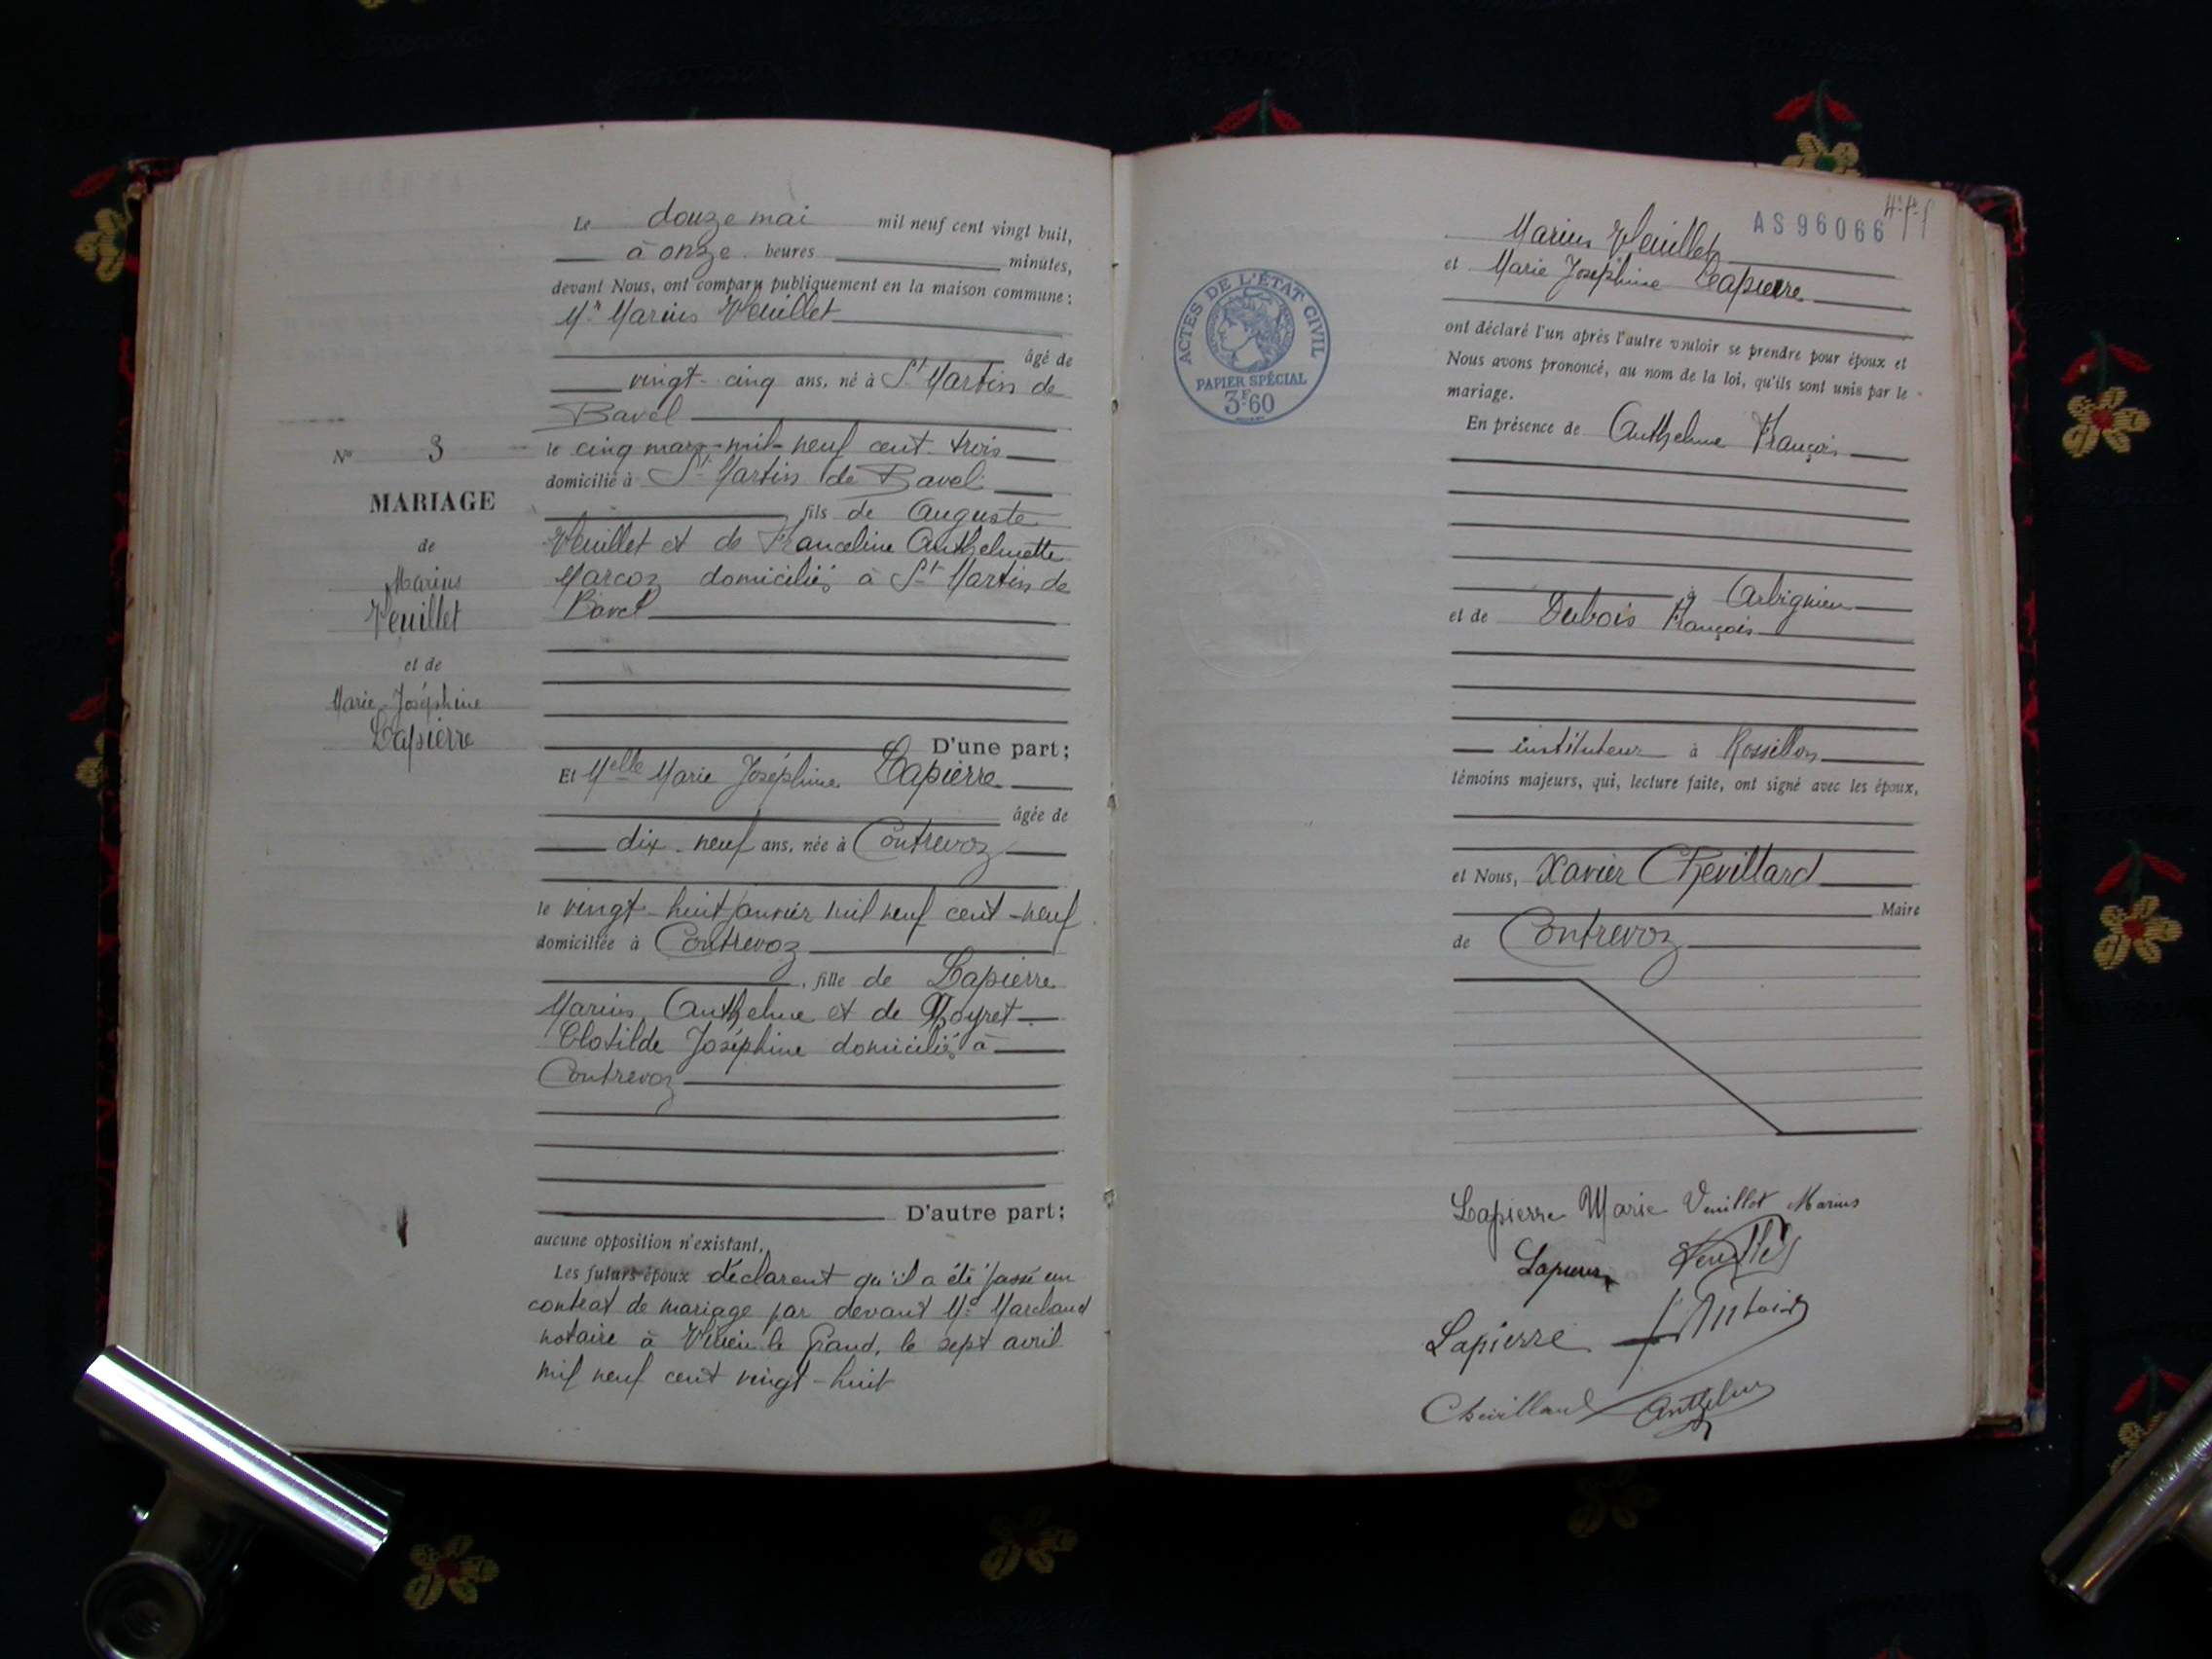 Le douze mai mil neuf cent vingt huit,
à onze heures minutes,
devant Nous, ont comparu publiquement en la maison commune :
Mr Marius Veuillet
âgé de
vingt-cinq ans, né à St Martin de
Bavel
le cinq mars mil neuf cent trois
domicilié à St Martin de Bavel
fils de Auguste
Veuillet et de Franceline Anthelmette
Marcoz domiciliés à St Martin de
Bavel
D'une part;
N° 3
MARIAGE
de
Marius
Veuillet
et de
Marie Joséphine
Lapierre
Et Melle Marie Joséphine Lapierre
âgée de
dix-neuf ans, née à Contrevoz
le vingt-huit janvier mil neuf cent-neuf
domiciliée à Contrevoz
, fille de Lapierre
Marius, Anthelme et de Moyret
Clotilde Joséphine domiciliés à
Contrevoz
D'autre part;
aucune opposition n'existant,
Les futurs époux déclarent qu'il a été passé un
contrat de mariage par devant Me Marchand
notaire à Virieu le Grand, le sept avril
mil neuf cent vingt-huit
AS96066
Marius Veuillet
et Marie Joséphine Lapierre
ACTES DE L'ÉTAT CIVIL
PAPIER SPÉCIAL
3F60
ont déclaré l'un après l'autre vouloir se prendre pour époux et
Nous avons prononcé, au nom de la loi, qu'ils sont unis par le
mariage.
En présence de Anthelme François
à Arbignieu
et de Dubois François
instituteur à Rossillon
témoins majeurs, qui, lecture faite, ont signé avec les époux,
et Nous, Xavier Chevillard
Maire
de Contrevoz
Lapierre Marie Veuillet Marius
Lapierre
Lapierre
Chevillard Anthelme